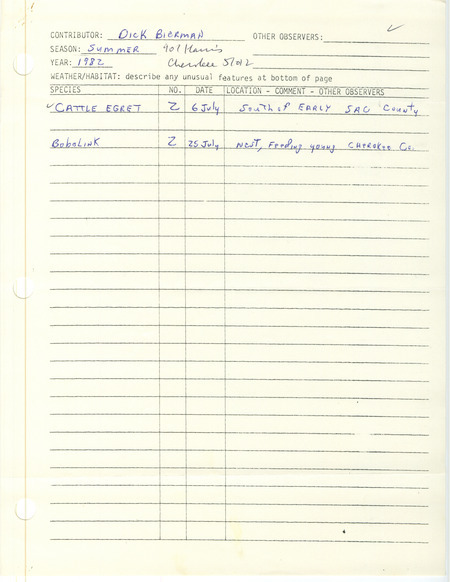 CONTRIBUTOR: DICK BIERMAN OTHER OBSERVERS:
SEASON: SUMMER 901 Harris
YEAR: 1982 Cherokee 51012
WEATHER/HABITAT: describe any unusual features at bottom of page
SPECIES NO. DATE LOCATION - COMMENT - OTHER OBSERVERS
✓CATTLE EGRET 2 6 July South of EARLY SAC County
BoboLink 2 25 July NEST, Feeding young CHEROKEE Co.